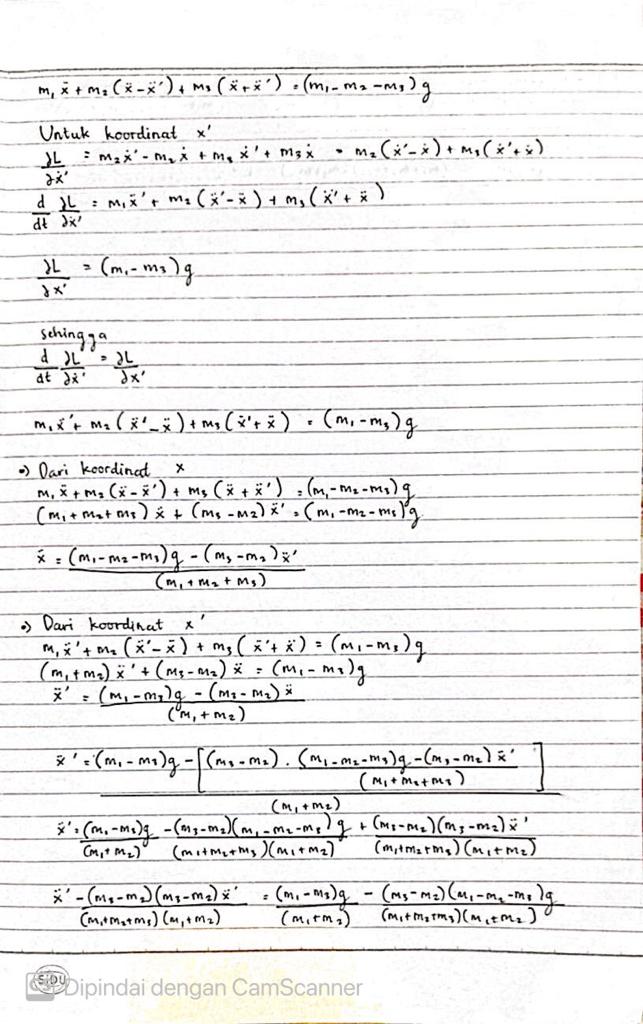 m₁ẍ + m₂(ẍ-ẍ') + m₃(ẍ+ẍ') = (m₁-m₂-m₃)g
Untuk koordinat x'
∂L/∂ẋ' = m₂ẋ' - m₂ẋ + m₃ẋ' + m₃ẋ = m₂(ẋ'-ẋ) + m₃(ẋ'+ẋ)
d/dt ∂L/∂ẋ' = m₁ẍ' + m₂(ẍ'-ẍ) + m₃(ẍ'+ẍ)
∂L/∂x' = (m₁-m₃)g
sehingga
d/dt ∂L/∂ẋ' = ∂L/∂x'
m₁ẍ' + m₂(ẍ'-ẍ) + m₃(ẍ'+ẍ) = (m₁-m₃)g
•) Dari koordinat x
m₁ẍ + m₂(ẍ-ẍ') + m₃(ẍ+ẍ') = (m₁-m₂-m₃)g
(m₁+m₂+m₃)ẍ + (m₃-m₂)ẍ' = (m₁-m₂-m₃)g
ẍ = (m₁-m₂-m₃)g - (m₃-m₂)ẍ' / (m₁+m₂+m₃)
•) Dari koordinat x'
m₁ẍ' + m₂(ẍ'-ẍ) + m₃(ẍ'+ẍ) = (m₁-m₃)g
(m₁+m₂)ẍ' + (m₃-m₂)ẍ = (m₁-m₃)g
ẍ' = (m₁-m₃)g - (m₃-m₂)ẍ / (m₁+m₂)
ẍ' = (m₁-m₃)g - [(m₃-m₂) . (m₁-m₂-m₃)g-(m₃-m₂)ẍ' / (m₁+m₂+m₃)] / (m₁+m₂)
ẍ' = (m₁-m₃)g / (m₁+m₂) - (m₃-m₂)(m₁-m₂-m₃)g / (m₁+m₂+m₃)(m₁+m₂) + (m₃-m₂)(m₃-m₂)ẍ' / (m₁+m₂+m₃)(m₁+m₂)
ẍ' - (m₃-m₂)(m₃-m₂)ẍ' / (m₁+m₂+m₃)(m₁+m₂) = (m₁-m₃)g / (m₁+m₂) - (m₃-m₂)(m₁-m₂-m₃)g / (m₁+m₂+m₃)(m₁+m₂)
SiDU
CS Dipindai dengan CamScanner